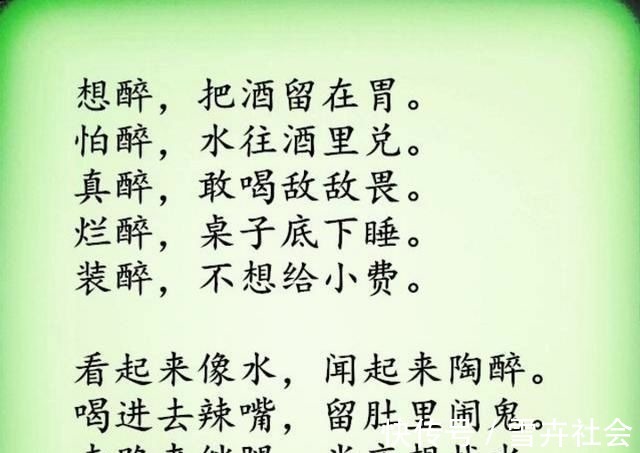 想醉，把酒留在胃。
怕醉，水往酒里兑。
真醉，敢喝敌敌畏。
烂醉，桌子底下睡。
装醉，不想给小费。
看起来像水，闻起来陶醉。
喝进去辣嘴，留肚里闹鬼。
快传号／雪卉社会